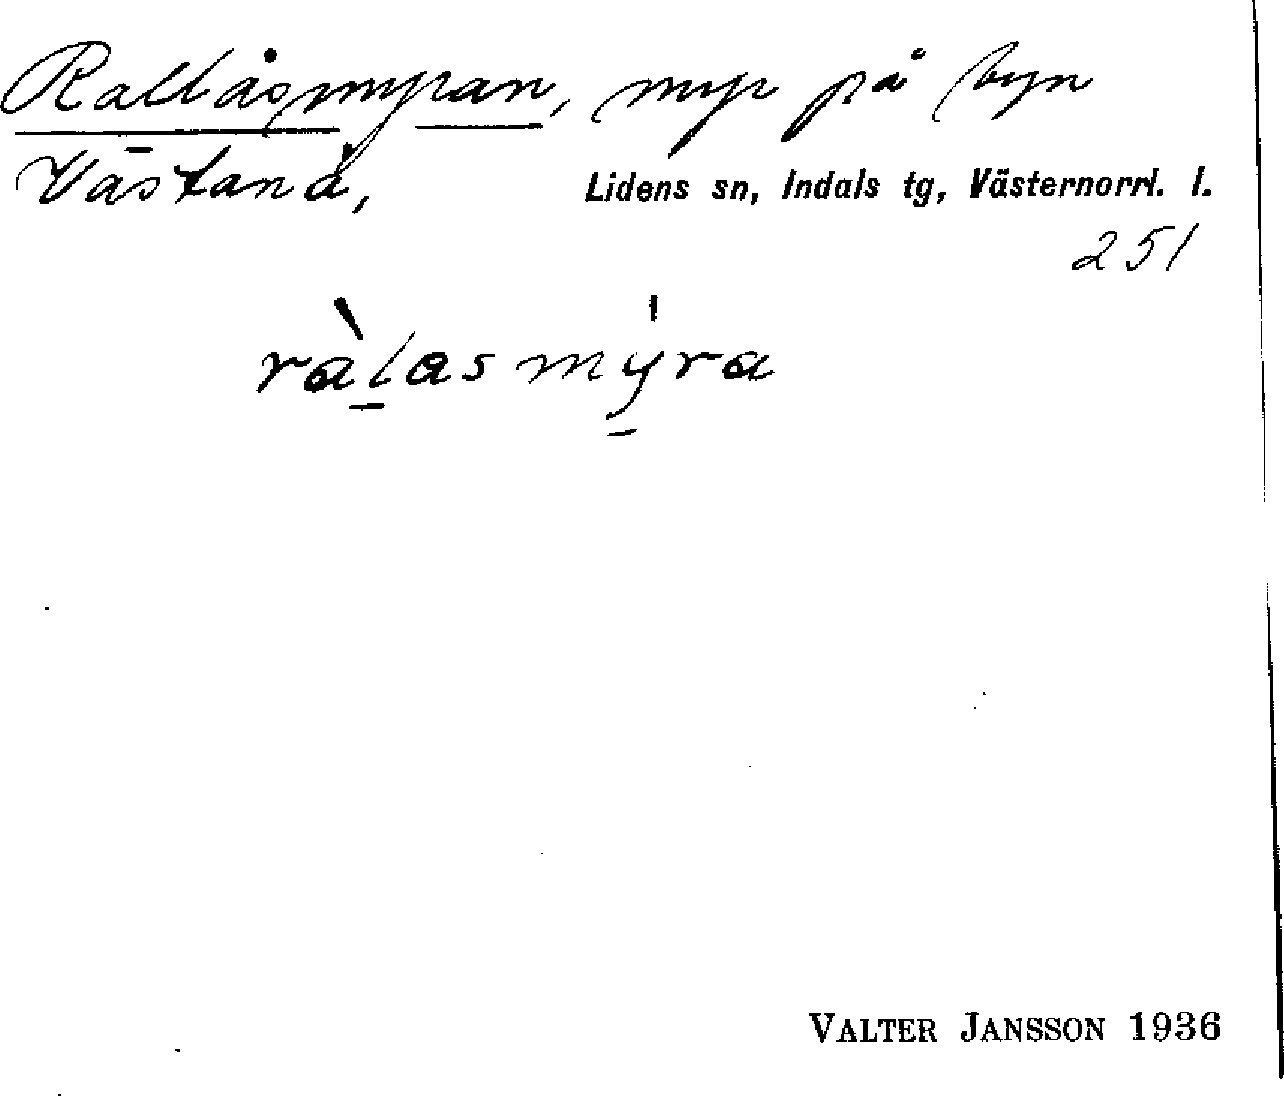 Rallåsmyran, myr på byn
Västanå,
Lidens sn, Indals tg, Västernorrl. l.
251
ràlasmýra
VALTER JANSSON 1936